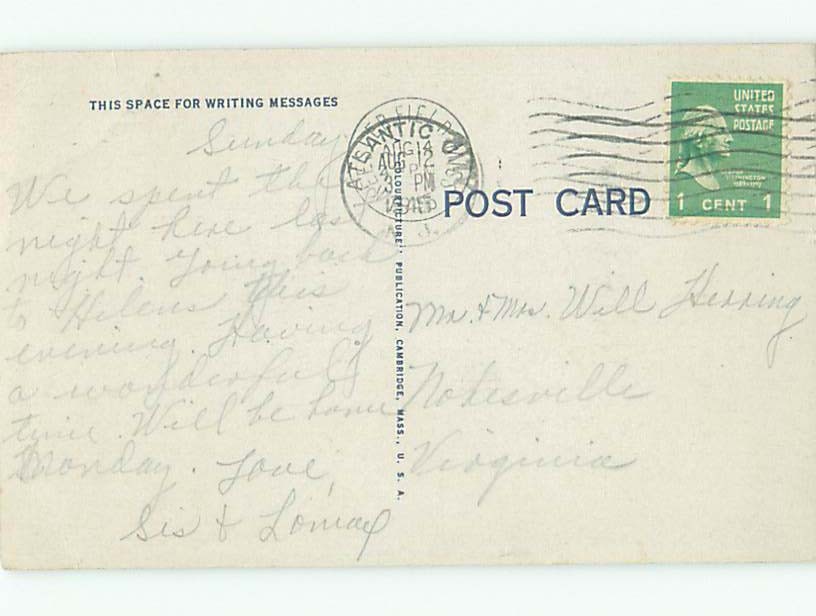 THIS SPACE FOR WRITING MESSAGES
Sunday
We spent the
night here last
night. Going back
to Helens this
evening. Having
a wonderful
time. Will be home
Monday. Love,
Sis & Lomax
ATLANTIC
AUG 14
AUG 12
PM
1945
N. J.
"COLOURPICTURE" PUBLICATION, CAMBRIDGE, MASS., U. S. A.
POST CARD
UNITED
STATES
POSTAGE
WASHINGTON
1 CENT 1
Mr. & Mrs. Will Herring
Nokesville
Virginia